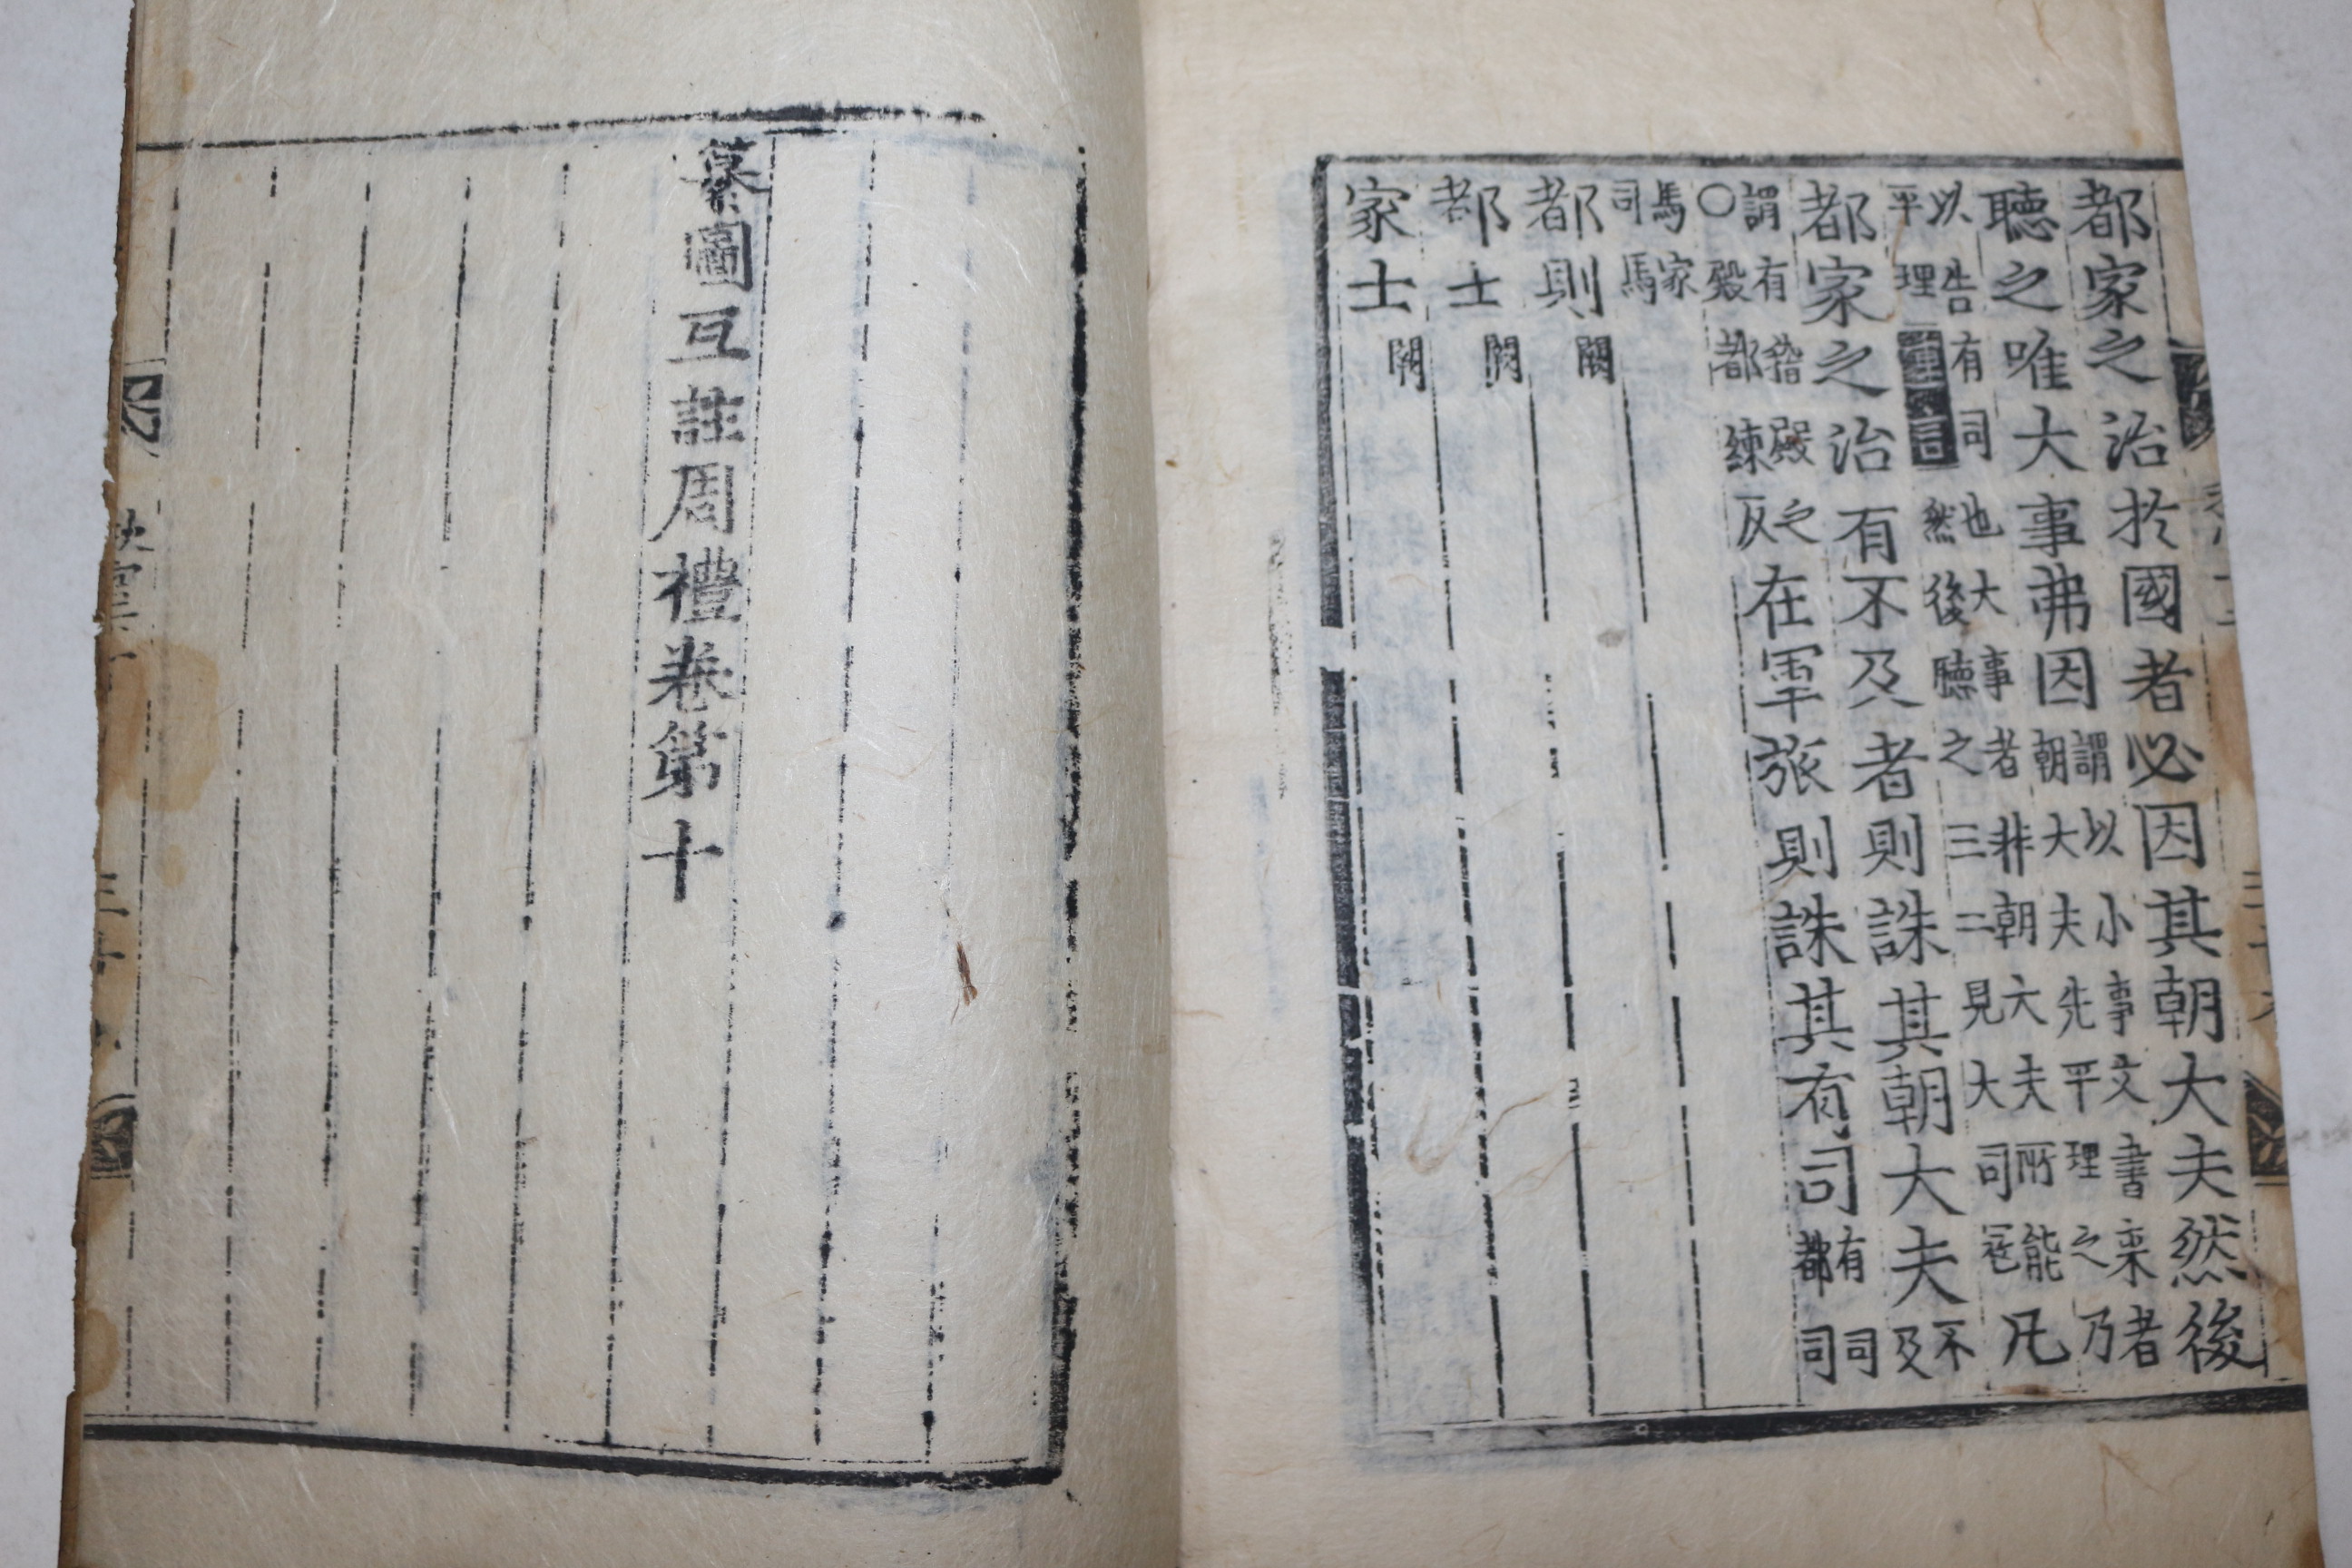 都家之治於國者必因其朝大夫然後
聽之唯大事弗因謂以小事文書来者朝大夫先平理之乃
以告有司也大事者非朝大夫所能平理 然後聽之三二見大司冦凡
都家之治有不及者則誅其朝大夫不及
謂有稽殿之○殿都練反在軍旅則誅其有司有司都司
馬家司馬
都則闕
都士闕
家士闕
纂圖互註周禮卷第十